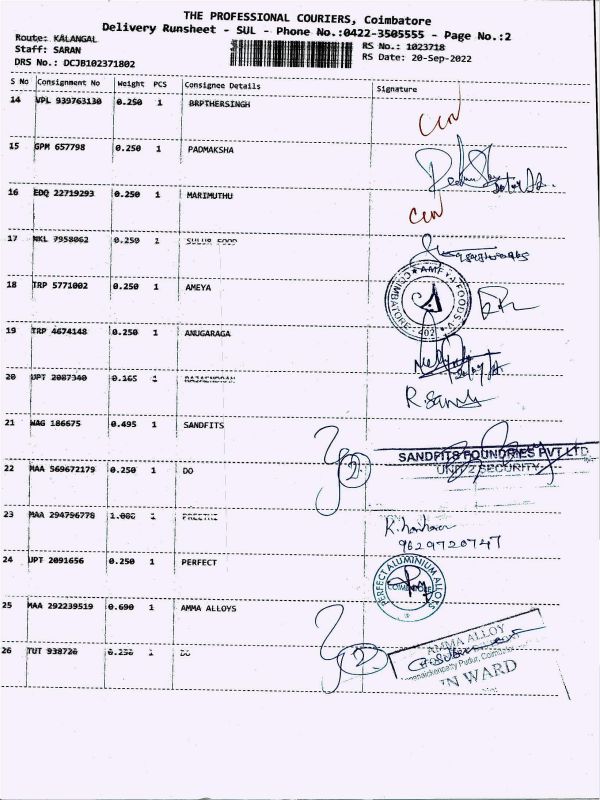 THE PROFESSIONAL COURIERS, Coimbatore
Delivery Runsheet - SUL - Phone No.:0422-3505555 - Page No.:2
Route: KALANGAL
Staff: SARAN
DRS No.: DCJB102371802
RS No.: 1023718
RS Date: 20-Sep-2022
S No Consignment No Weight PCS Consignee Details Signature
14 VPL 939763130 0.250 1 BRPTHERSINGH
15 GPM 657798 0.250 1 PADMAKSHA
16 EDQ 22719293 0.250 1 MARIMUTHU
17 NKL 7958062 0.250 1 SULUR FOOD
18 TRP 5771002 0.250 1 AMEYA
19 TRP 4674148 0.250 1 ANUGARAGA
20 UPT 2087340 0.165 1
R Sandy
21 WAG 186675 0.495 1 SANDFITS
2
SANDFITS FOUNDRIES PVT LTD
UNIT 2 SECURITY
22 MAA 569672179 0.250 1 DO
23 MAA 294796778 1.000 1 PREETHI
9629720747
24 UPT 2091656 0.250 1 PERFECT
PERFECT ALUMINIUM ALLOYS
COIMBATORE
25 MAA 292239519 0.690 1 AMMA ALLOYS
2
AMMA ALLOY
IN WARD
26 TUT 938726 0.250 1 DO